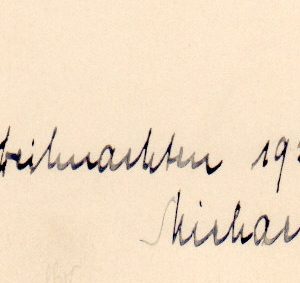 Weihnachten 19
Micha